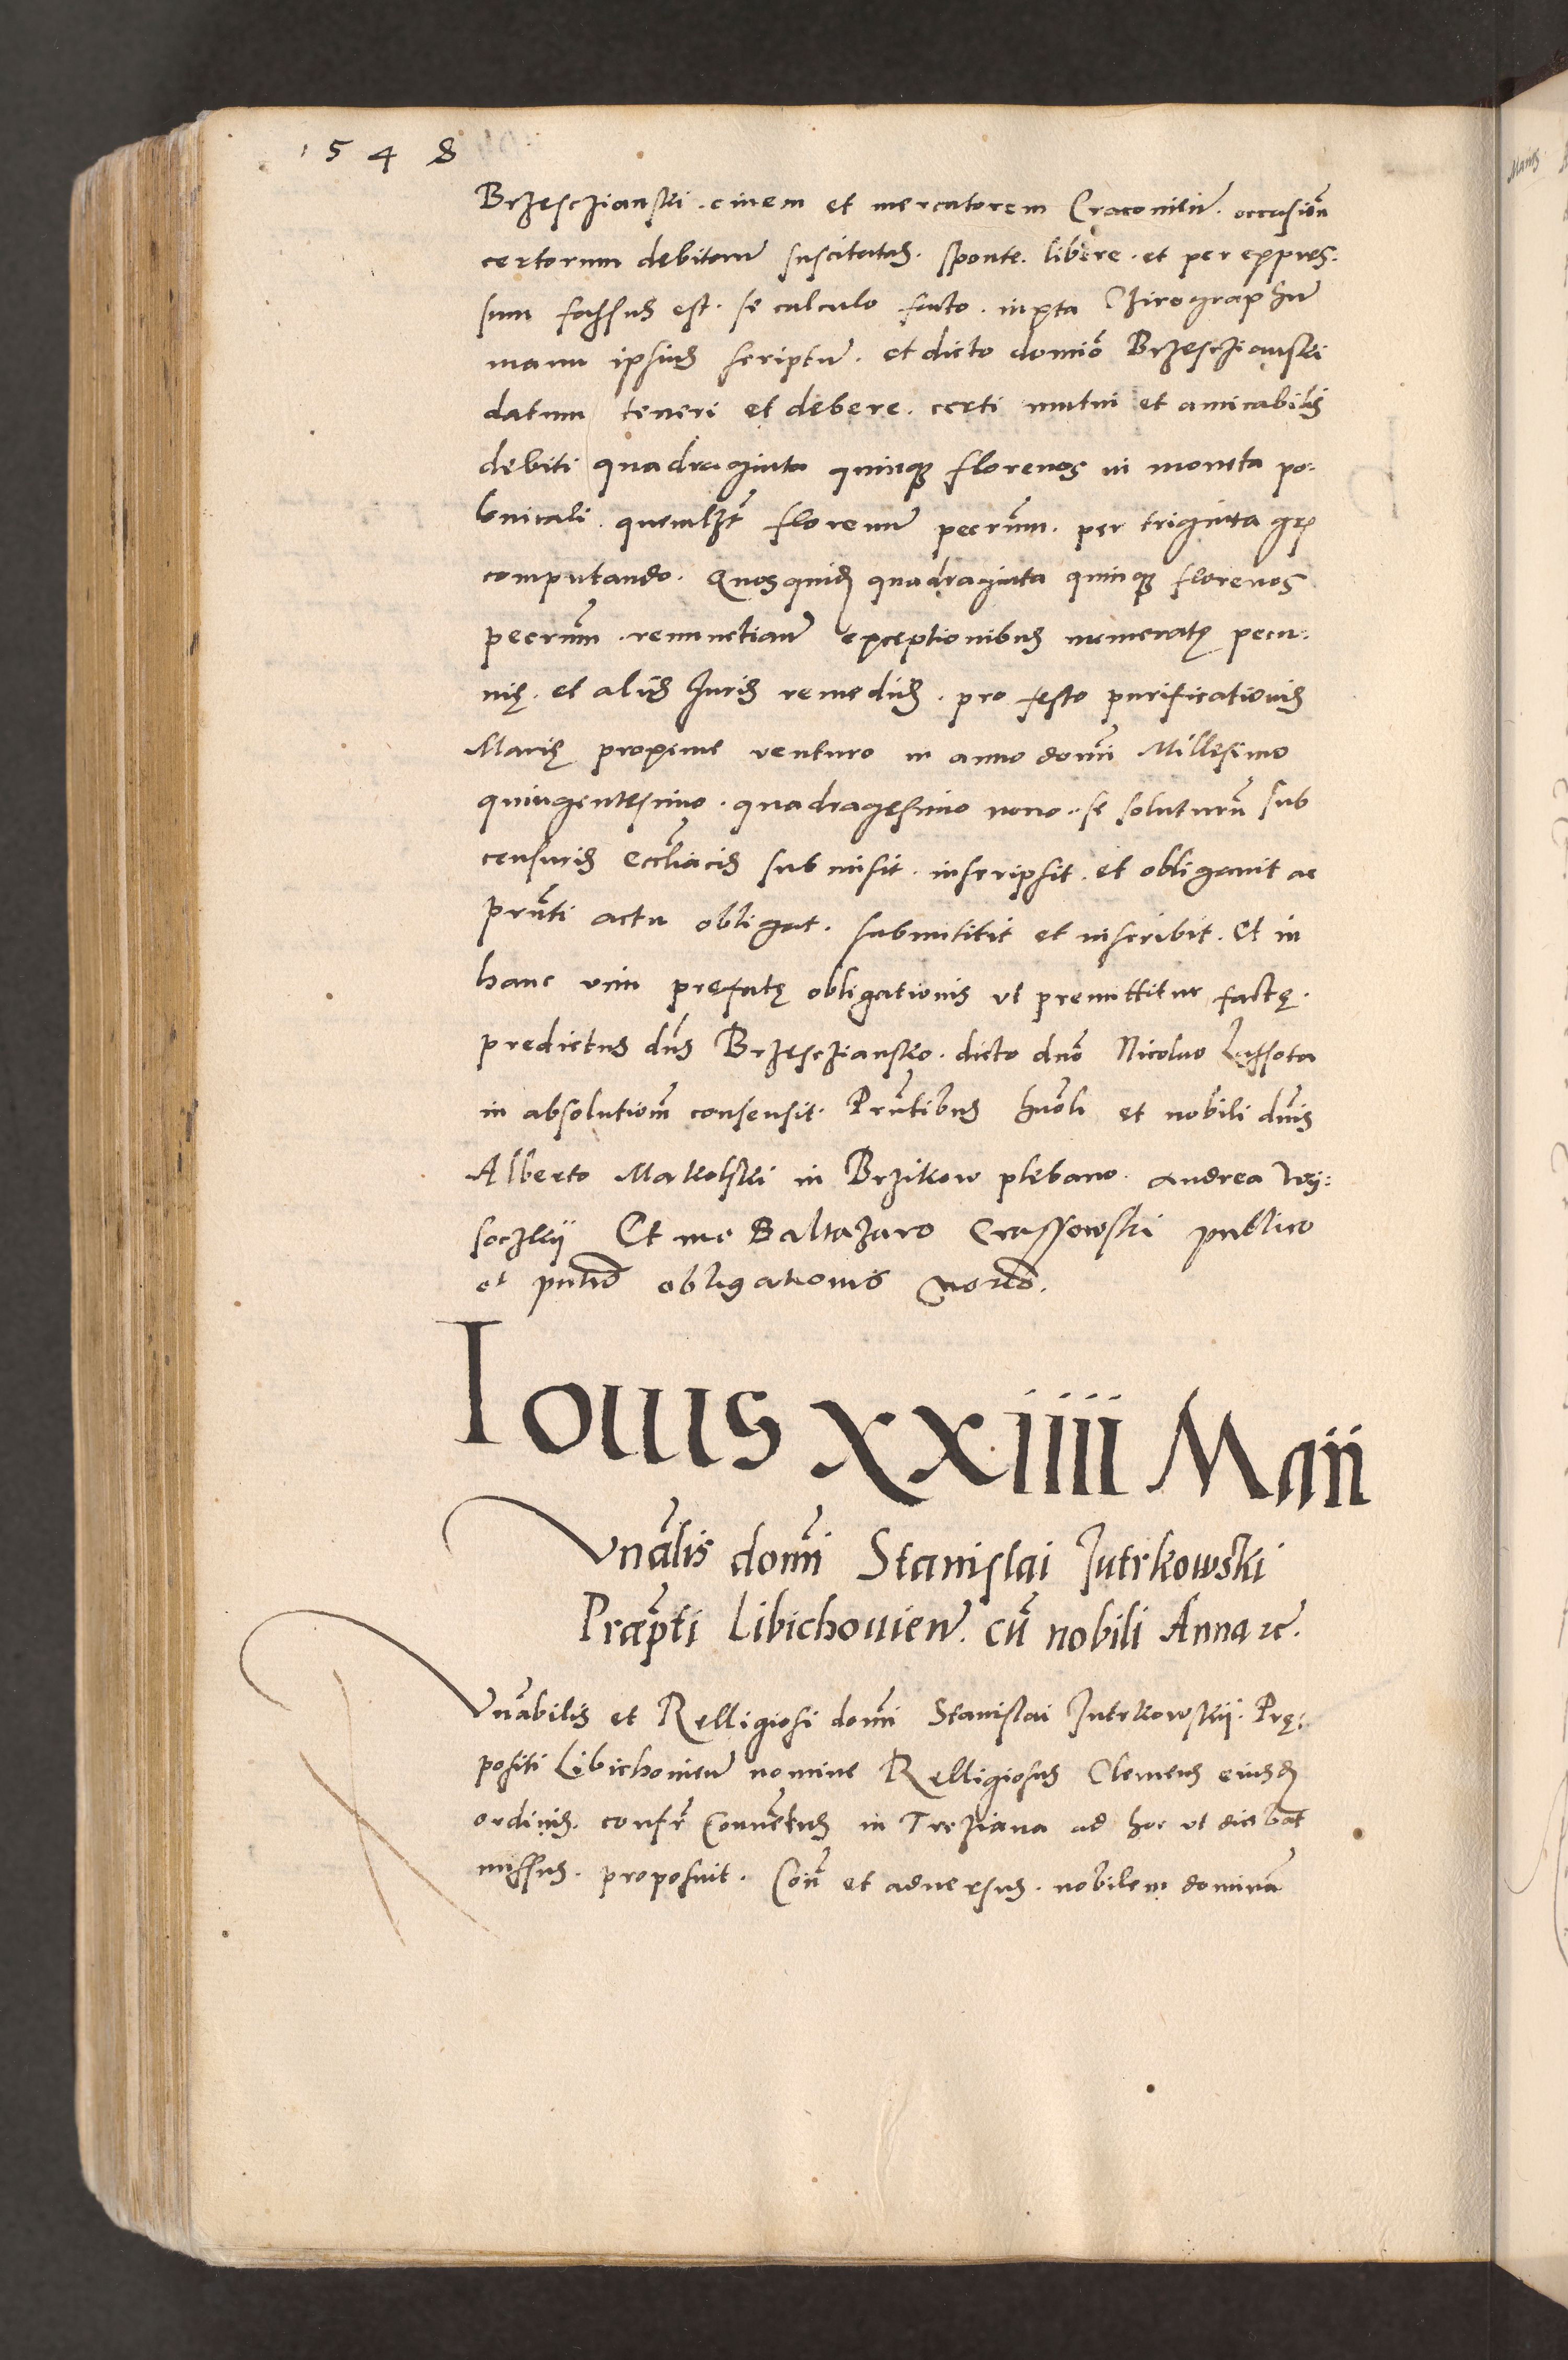 1548
Brzesczianski . ciuem et mercatorem Cracouien̄ . occasiōn
certorum debitorum̄ suscitatas . sponte . libere . et per expres:
sum fassus est . se calculo facto . iuxta Chirographum̄
manu ipsius scriptum̄ . et dicto domiō Brzescziauski
datum teneri et debere . certi mutui et amicabilis
debiti quadraginta quinque florenos in moneta po:
lonicali . quemlzt florenum̄ pecūn . per triginta gr
computando . Quosquid quadraginta quinque florenos
pecūn . renunctian̄ exceptionibus numeratę pecu:
nię . et alijs Juris remedijs . pro festo purificationis
Marię proxime venturo in anno domī Millesimo
quingentesimo . quadragesimo nono . se soluturū sub
censuris eccliācis submisit . inscripsit . et obligauit ac
prn̄ti actu obligat . submittit et inscribit . Et in
hanc vim prefatę obligationis vt premittitur factę .
predictus dn̄s Brzescziansko . dicto dnō Nicolao Lassota
in absolutiom̄ consensit . Prn̄tibus hnōli et nobili dn̄is
Alberto Makolski in Brzikow plebano . Andrea Wy:
soczkij Et me Baltazaro Crassowski publico
et pn̄tis obligationis Noriō .
Iouis XXIIII Maii
Vnālis domī Stanislai Jutrkowski
Præp̄ti Libichouien̄ . cū nobili Anna rc .
Vnābilis et Relligiosi domī Stanislai Jutrkowskij . Prę:
positi Libichouien̄ nomine Relligiosus Clemens eiusd
ordinis . confr̄ Conuentus in Trcziana ad hoc vt dicebat
missus . proposuit . Con̄ et aduersus . nobilem dominā